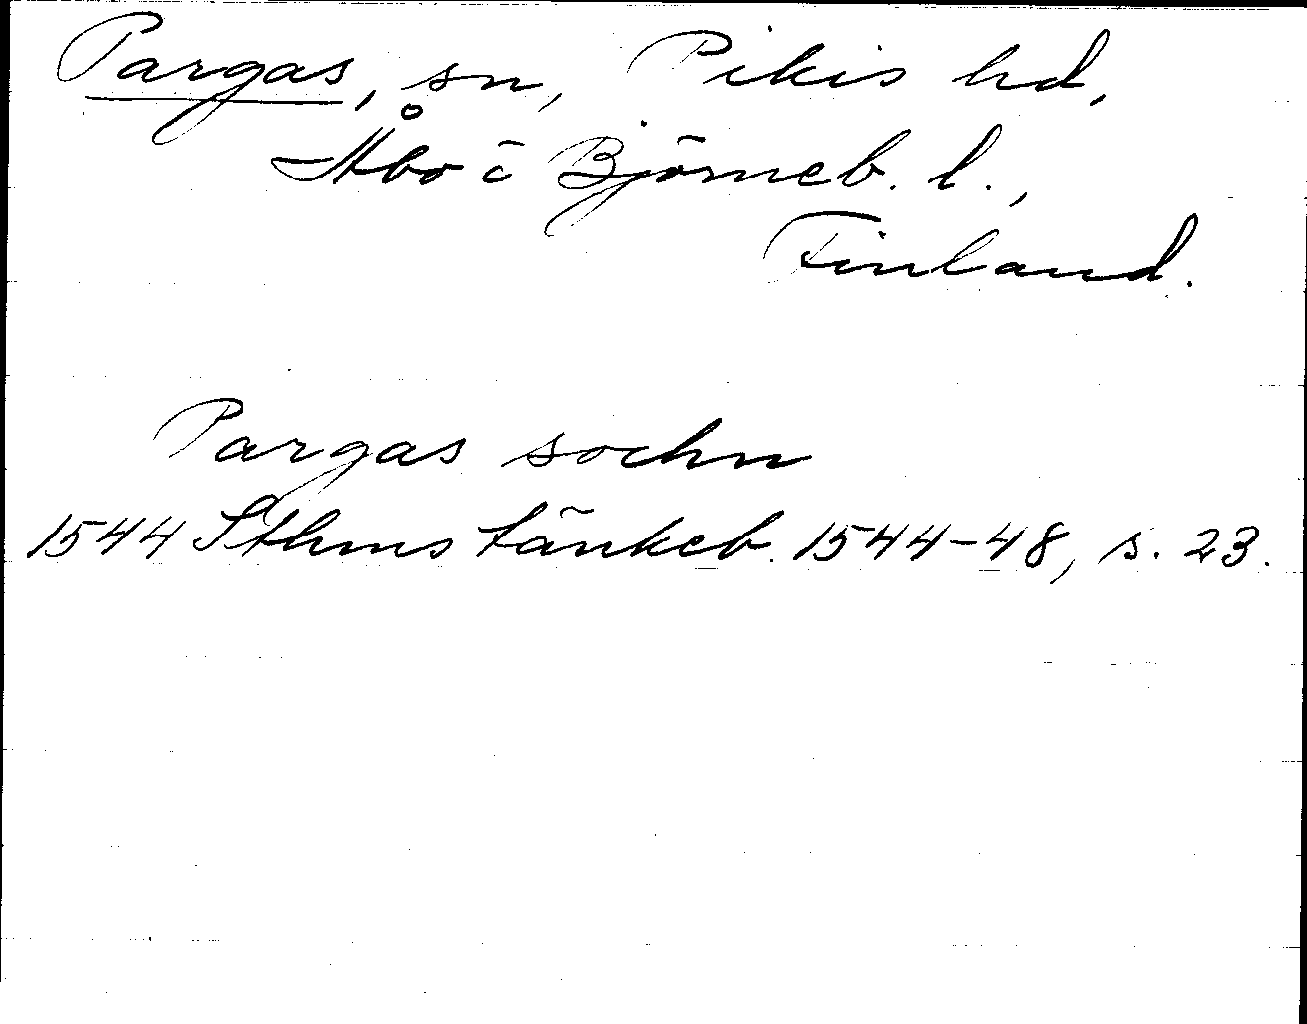 Pargas, sn, Pikis hd,
Åbo o Björneb. l.,
Finland.
Pargas sochn
1544 Sthms tänkeb. 1544-48, s. 23.